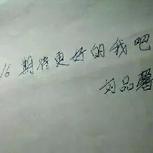 16 期待更好的我吧
刘品醫